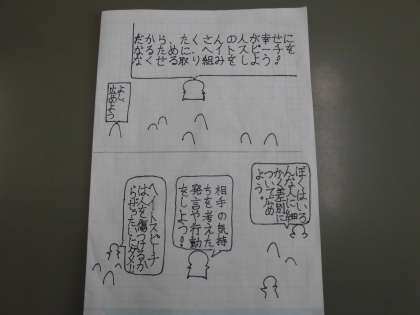 だから、たくさんの人が幸せに
なるために、ヘイトスピーチを
なくせる取り組みをしよう!
よし
広めよう
ぼくはいろ
んな人に細
かく差別に
ついて広め
よう。
相手の気持
ちを考えた
発言や行動
をしよう!
ヘイトスピーチ
は人を傷つけるか
らぜったいにダメ!!